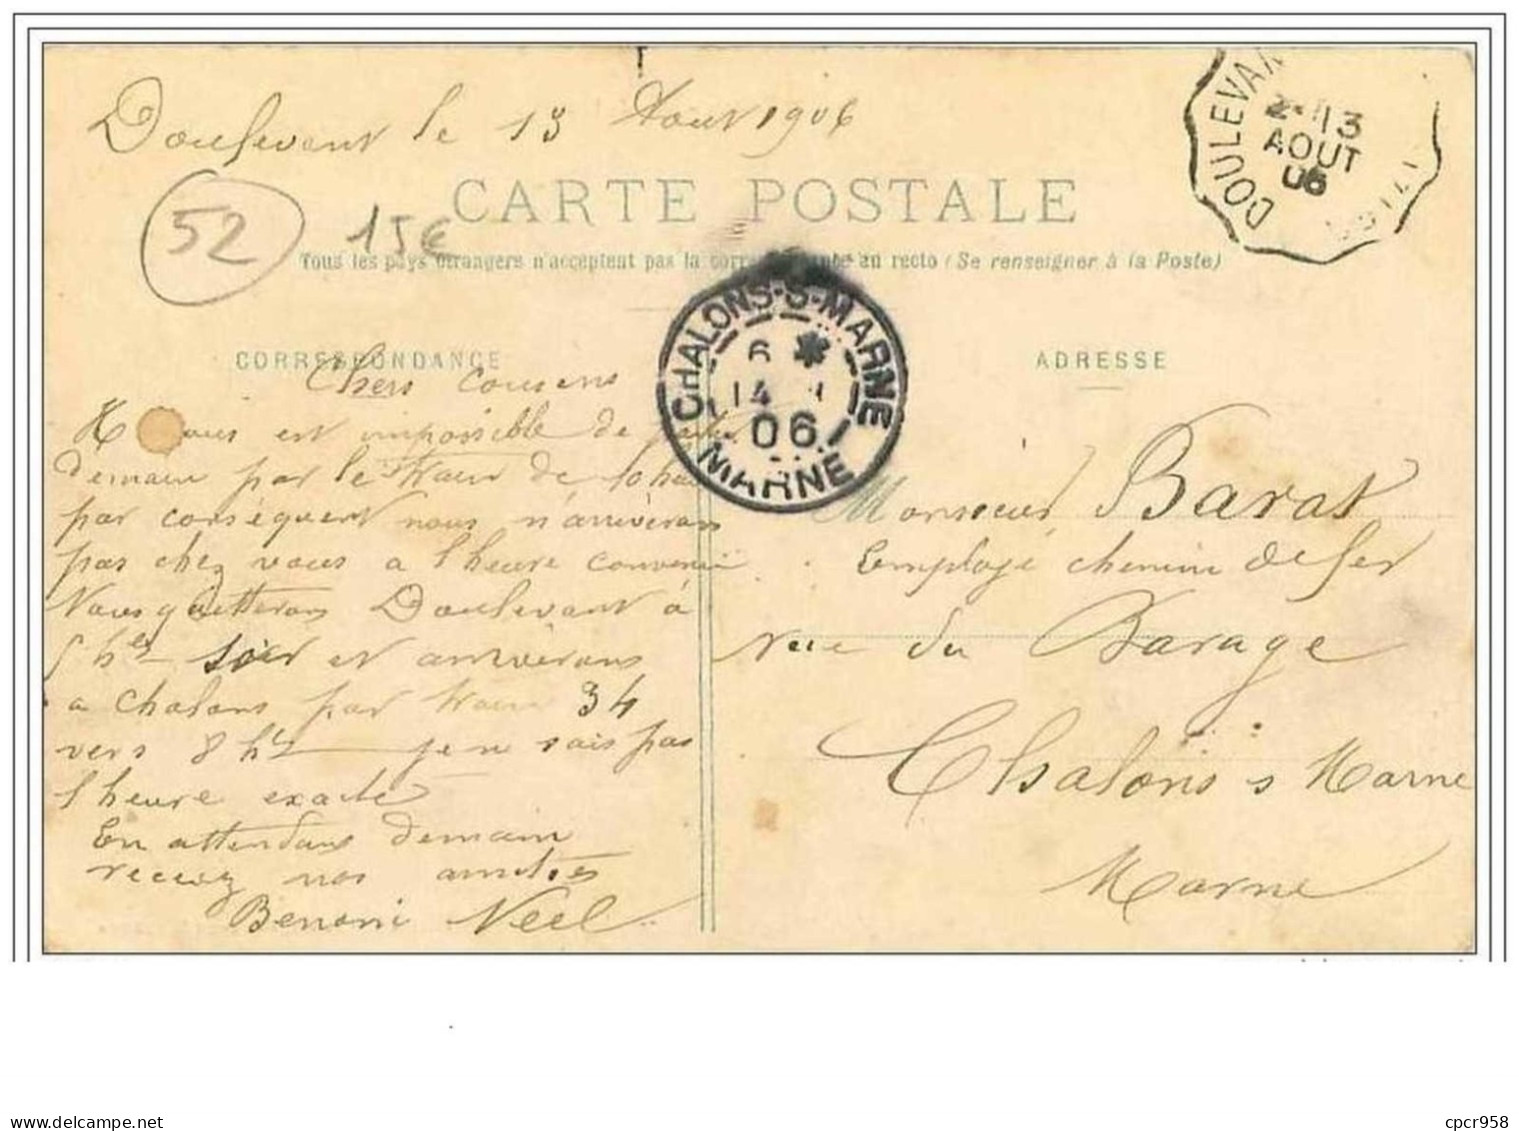 Doulevant le 13 Aout 1906
DOULEVAN
2 13
AOUT
06
52
15€
CARTE POSTALE
Tous les pays étrangers n'acceptent pas la au recto (Se renseigner à la Poste)
CHALONS-S-MARNE
6 *
14
06
MARNE
CORRESPONDANCE
ADRESSE
Chers cousins
est impossible de
demain par le train de
par conséquent nous n'arriverons
pas chez vous a l'heure convenu
Nous quitterons Doulevant à
5 hes soir et arriverons
a chalons par train 34
vers 8 hes je n sais pas
l'heure exacte
En attendant demain
recevez nos amitiés
Benoni Neel
Monsieur Barat
Employé chemin de fer
rue du Barage
Chalons s Marne
Marne
cpcr958